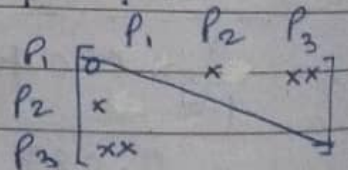 P1 P2 P3
P1 0 x xx
P2 x
P3 xx